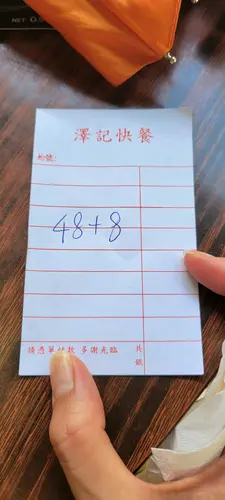 NET 0.9
澤記快餐
枱號:
48+8
請憑單付款 多謝光臨
共銀